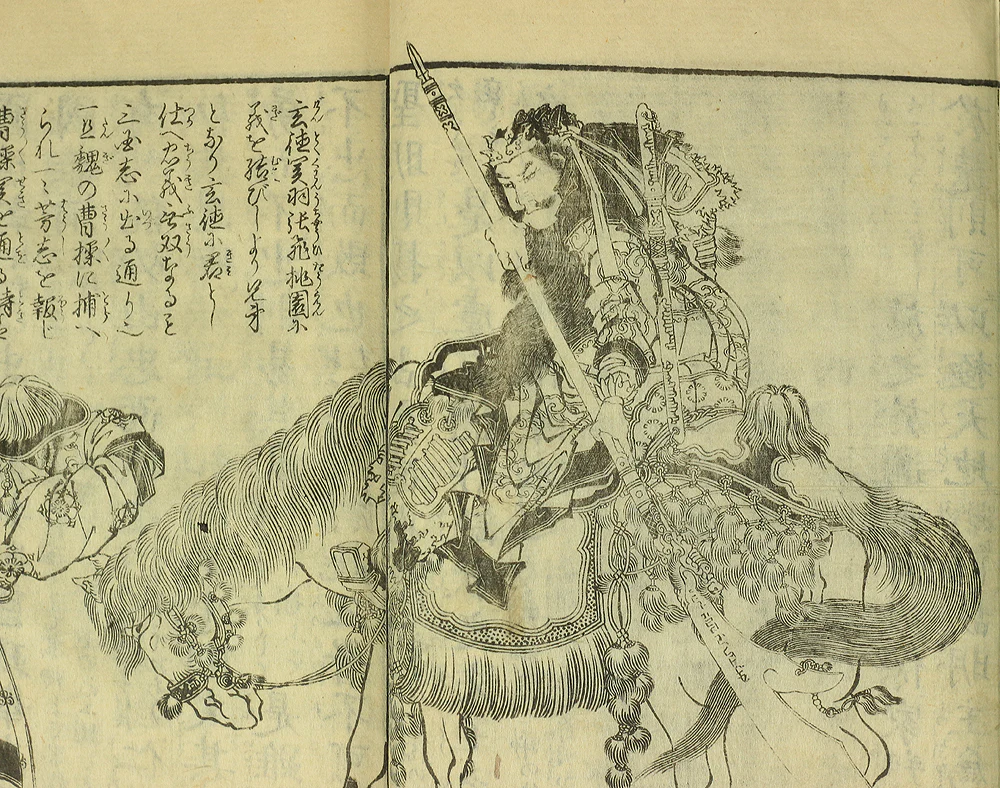 玄徳関羽張飛桃園に
義を結びしより兄弟
となり玄徳に君とし
仕へ忠義無双なること
三国志に出る通り也
一旦魏の曹操に捕へ
られ芳志を報じ
曹操関を通る時